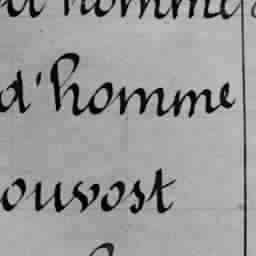 d'homme
d'homme
ouvost